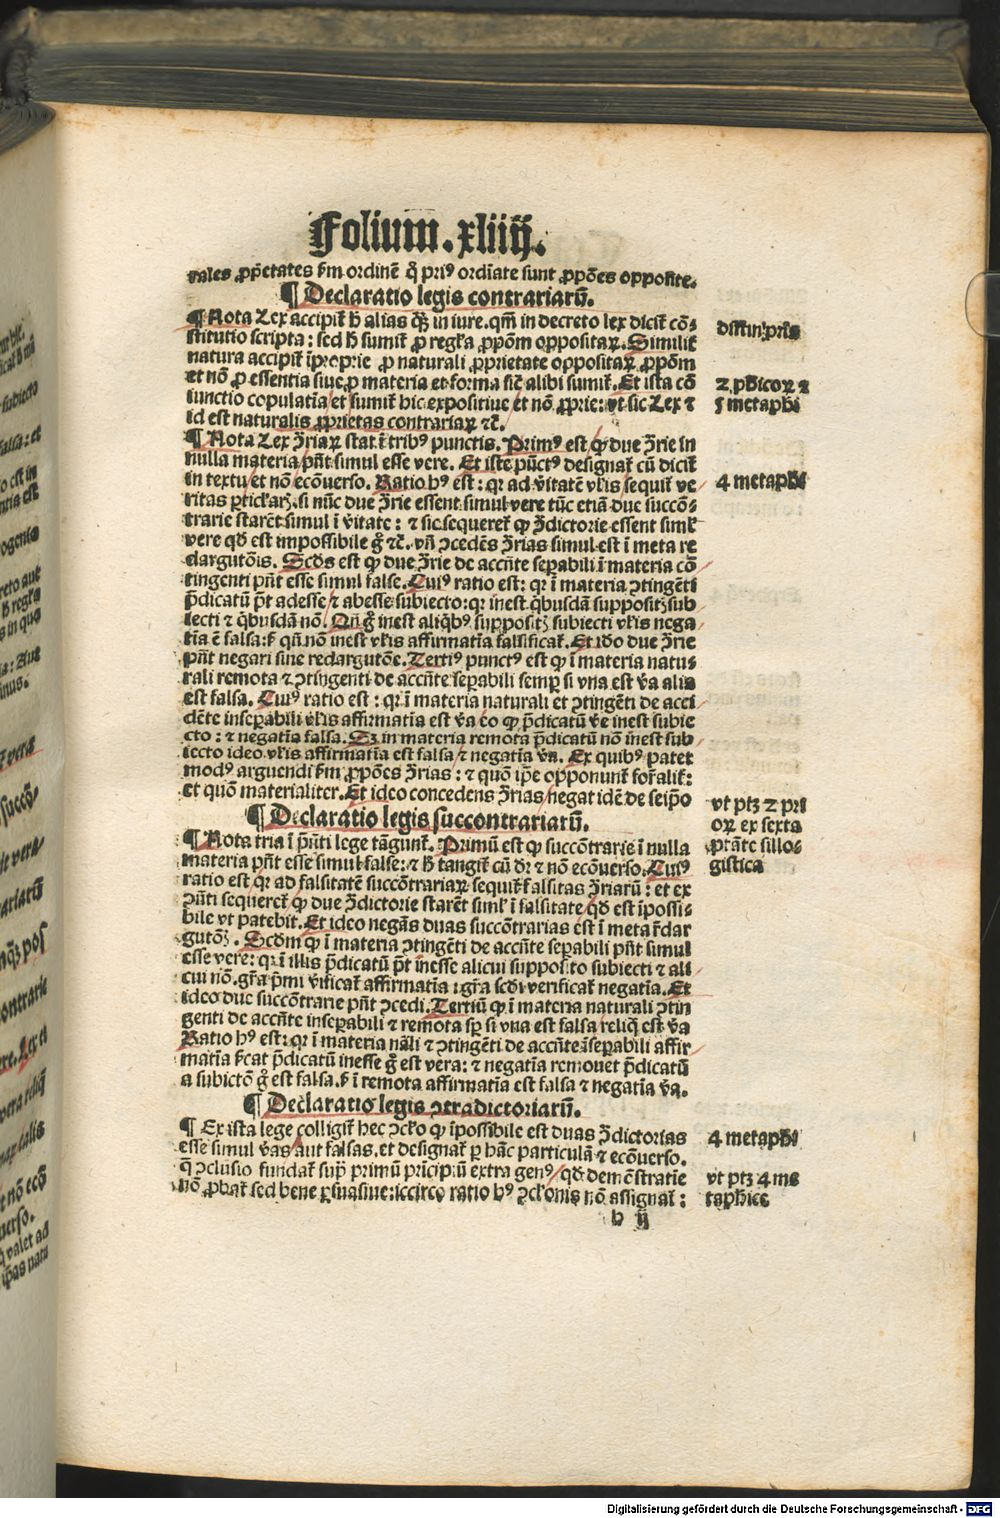 Folium. xliiij.
rales ꝓp̄etates ẜm ordinē q̄ priꝰ ordīate sunt ꝓpōes opposite.
¶ Declaratio legis contrariarū.
¶ Nota Lex accipit̄ h̄ alias qꝫ̄ in iure. qm̄ in decreto lex dicit̄ cō⸗
stitutio scripta: sed h̄ sumit̄ ꝓ regl̓a ꝓpōm oppositaꝝ. Similit̄
natura accipit̄ īproprie ꝓ naturali ꝓprietate oppositaꝝ ꝓpōm
et nō ꝓ essentia siue ꝓ materia et forma sic̄ alibi sumit̄. Et ista cō
iunctio copulatia et sumit̄ hic expositiue et nō ꝓprie: vt sic Lex ⁊
id est naturalis ꝓprietas contrariaꝝ ⁊c̄.
distin. pria
2 phicoꝝ ⁊
5 metaphi
¶ Nota Lex ↄ̄riaꝝ stat ī tribꝰ punctis. Primꝰ est ꝙ due ↄ̄rie in
nulla materia pn̄t simul esse vere. Et iste pūctꝰ designat̄ cū dicit̄
in textu et nō ecōuerso. Ratio hꝰ est: qꝛ ad v̄itatē vl̓is sequit̄ ve⸗
ritas ꝑticl̓arꝫ. si nūc due ↄ̄rie essent simul vere tūc etiā due succō⸗
trarie starēt simul ī v̄itate: ⁊ sic sequeret̄ ꝙ ↄ̄dictorie essent siml̓
vere qd̄ est impossibile g̊ ⁊c̄. vn̄ ↄcedēs ↄ̄rias simul est ī meta re
dargutōis. Scd̄s est ꝙ due ↄ̄rie de accn̄te seꝑabili ī materia cō
tingenti pn̄t esse simul false. Cuiꝰ ratio est: qꝛ ī materia ↄtingēti
p̄dicatū pt̄ adesse ⁊ abesse subiecto: qꝛ inest qͥbusdā suppositꝫ sub
iecti ⁊ qͥbusdā nō. Qn̄ g̊ inest aliqͥbꝰ suppositꝫ subiecti vl̓is nega
tia ē falsa: ẜ qn̄ nō inest vl̓is affirmatīa falsificat̄. Et iō due ↄ̄rie
pn̄t negari sine redargutōe. Tertiꝰ punctꝰ est ꝙ ī materia natu⸗
rali remota ⁊ ↄtingenti de accn̄te seꝑabili semꝑ si vna est v̄a alia
est falsa. Cuiꝰ ratio est: qꝛ ī materia naturali et ↄtingēti de acci
dēte inseꝑabili vl̓is affirmatīa est v̄a eo ꝙ p̄dicatū v̄e inest subie
cto: ⁊ negatīa falsa. Sꝫ in materia remota p̄dicatū nō inest sub
iecto ideo vl̓is affirmatīa est falsa ⁊ negatīa v̄a. Ex quibꝰ patet
modꝰ arguendi ẜm ꝓpōes ↄ̄rias: ⁊ quō ip̄e opponunt̄ forl̓alit̄:
et quō materialiter. Et ideo concedens ↄ̄rias negat idē de seip̄o
4 metaphi
¶ Declaratio legis succontrariarū.
¶ Nota tria ī p̄nti lege tāgunt̄. Primū est ꝙ succōtrarie ī nulla
materia pn̄t esse simul false: ⁊ h̄ tangit̄ cū dꝛ̄ ⁊ nō ecōuerso. Cuiꝰ
ratio est qꝛ ad falsitatē succōtrariaꝝ sequit̄ falsitas ↄ̄riarū: et ex
ↄn̄ti sequeret̄ ꝙ due ↄ̄dictorie starēt siml̓ ī falsitate qd̄ est īpossi⸗
bile vt patebit. Et ideo negās duas succōtrarias est ī meta r̄dar
gutōꝫ. Scd̄m ꝙ ī materia ↄtingēti de accn̄te seꝑabili pn̄t simul
esse vere: qꝛ ī illis p̄dicatū pt̄ inesse alicui supposito subiecti ⁊ ali
cui nō. gr̄a pͥmi v̄ificat̄ affirmatīa: gr̄a scd̄i verificat̄ negatīa. Et
ideo due succōtrarie pn̄t ↄcedi. Tertiū ꝙ ī materia naturali ↄtin
genti de accn̄te inseꝑabili ⁊ remota sꝑ si vna est falsa reliq̄ est v̄a
Ratio hꝰ est: qꝛ ī materia nāli ⁊ ↄtingēti de accn̄te īseꝑabili affir
matīa ẜcat p̄dicatū inesse g̊ est vera: ⁊ negatīa remouet p̄dicatū
a subictō g̊ est falsa. ẜ ī remota affirmatīa est falsa ⁊ negatīa v̄a.
vt ptꝫ 2 pri
oꝝ ex sexta
ꝓtate sillo⸗
gistica
¶ Declaratio legis ↄtradictoriarū.
¶ Ex ista lege colligit̄ hec ↄcl̓o ꝙ īpossibile est duas ↄ̄dictorias
esse simul v̄as aut falsas. et designat̄ ꝑ hāc particulā ⁊ ecōuerso.
q̄ ↄclusio fundat̄ suꝑ primū prīcipiū extra genꝰ qd̄ demōstratīe
nō ꝓbat̄ sed bene ꝑsuasiue: iccirco ratio hꝰ ↄcl̓onis nō assignat̄:
4 metaphi
vt ptꝫ 4 me
taphice
h ij
Digitalisierung gefördert durch die Deutsche Forschungsgemeinschaft - DFG